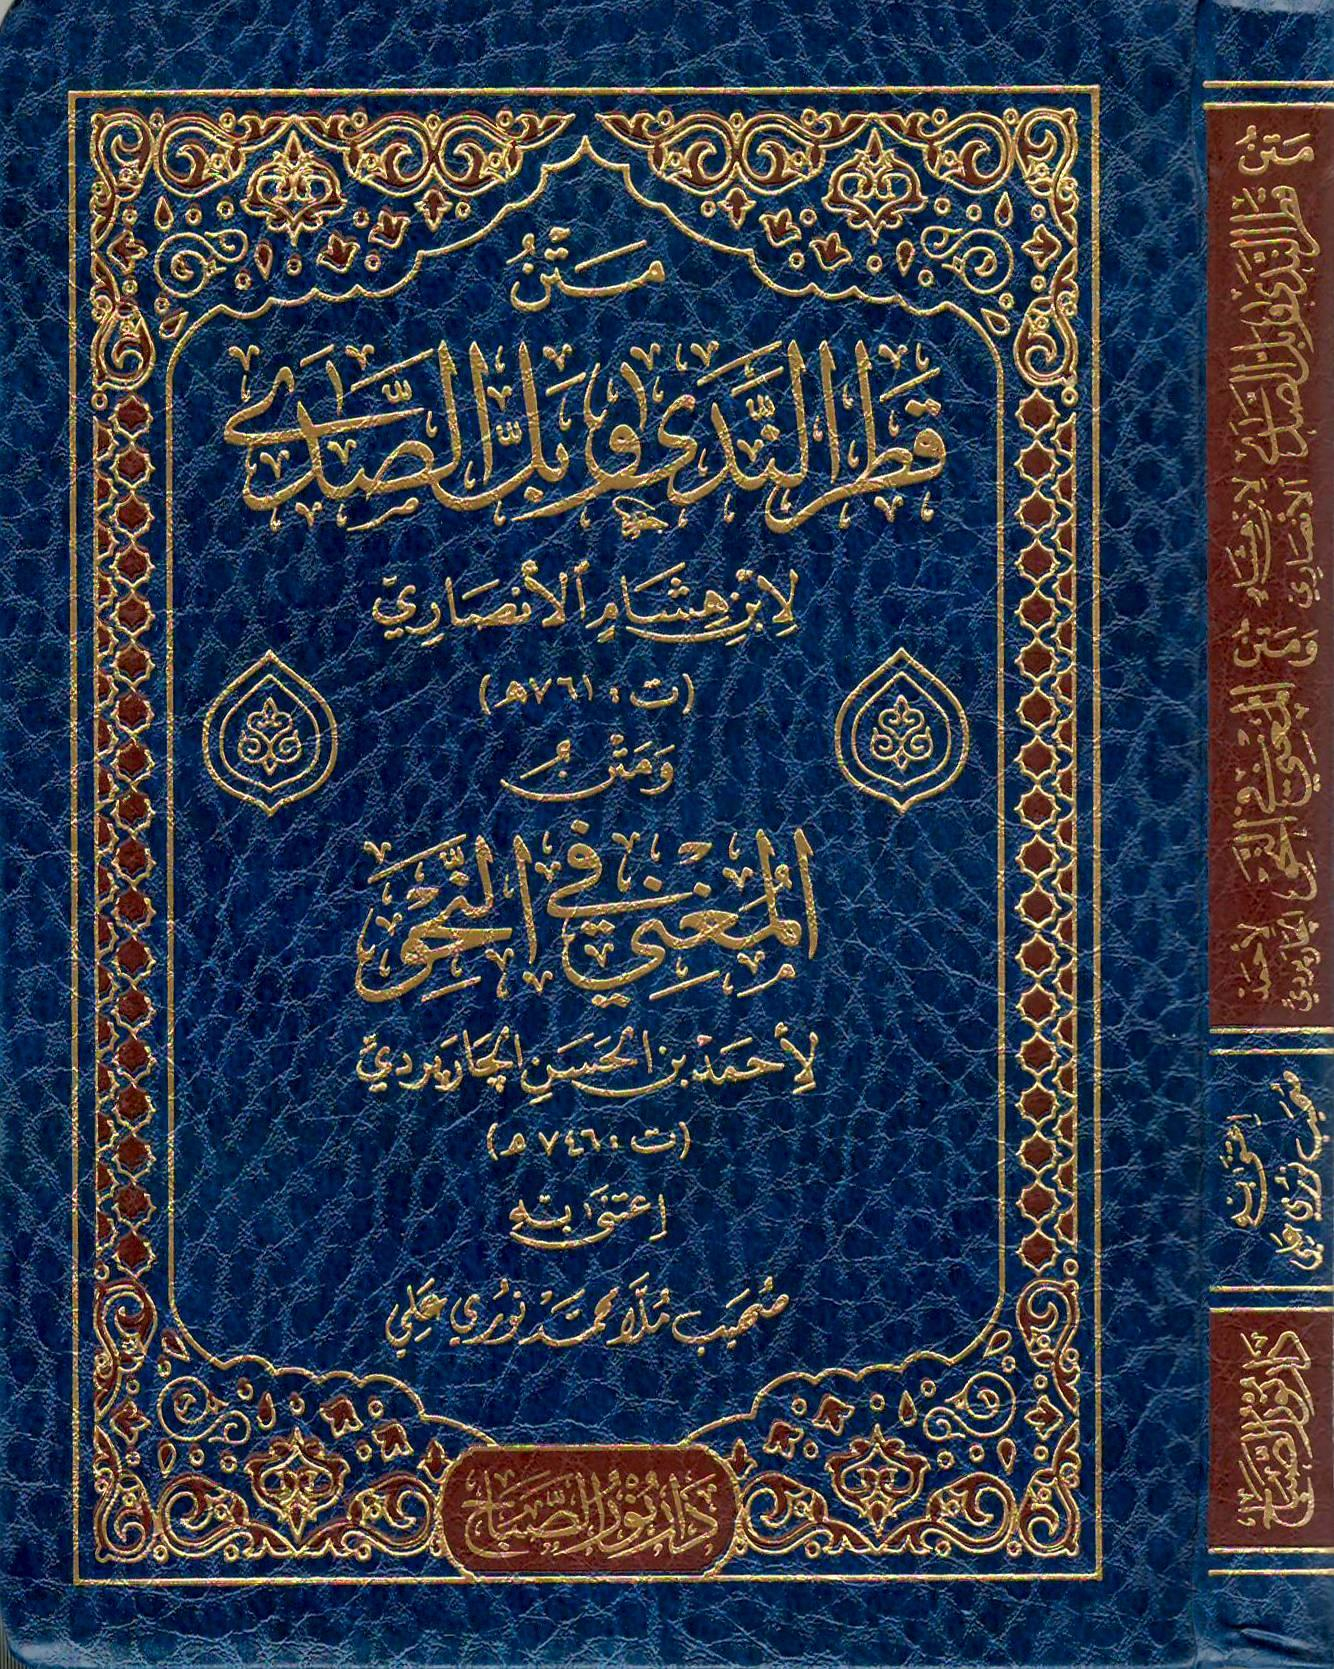 مَتْنُ
قَطْرِ النَّدَى وَبَلِّ الصَّدَى
لِابْنِ هِشَامٍ الْأَنْصَارِيِّ
(ت : ٧٦١هـ)
وَمَتْنُ
المُغْنِي فِي النَّحْوِ
لِأَحْمَدَ بْنِ الْحَسَنِ الْجَارَبَرْدِيِّ
(ت : ٧٤٦هـ)
اِعْتَنَى بِهِ
صُهَيْب مُلَّا مُحَمَّد نُورِي عَلِي
دَارُ نُورِ الصَّبَاحِ
مَتْنُ قَطْرِ النَّدَى وَبَلِّ الصَّدَى لِابْنِ هِشَامٍ الْأَنْصَارِيِّ وَمَتْنُ المُغْنِي فِي النَّحْوِ لِأَحْمَدَ الْجَارَبَرْدِيِّ
اِعْتَنَى بِهِ
صُهَيْب نُورِي عَلِي
دَارُ نُورِ الصَّبَاحِ